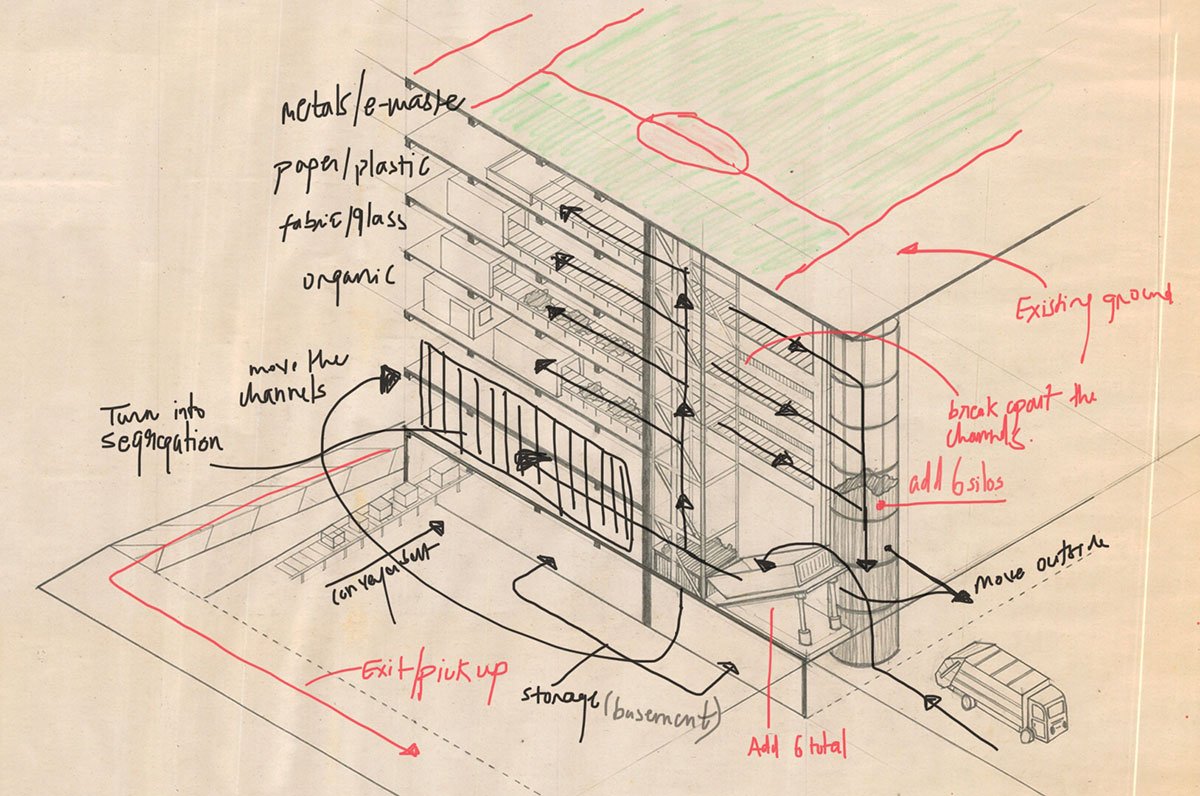 metals/e-waste
paper/plastic
fabric/glass
organic
move the
channels
Turn into
segregation
Existing ground
break apart the
channels.
add 6 silos
move outside
conveyor belt
Exit/pick up
storage (basement)
Add 6 total